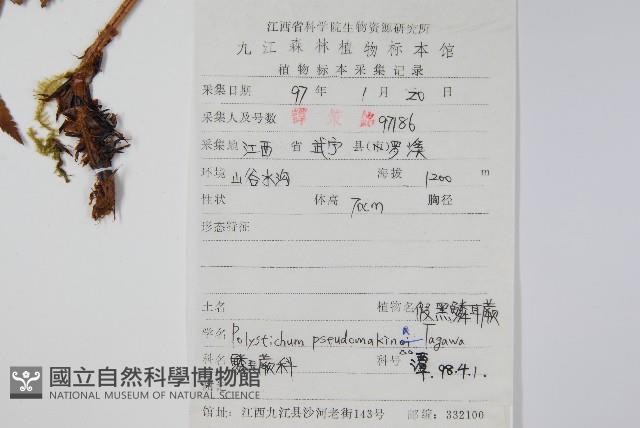 江西省科学院生物资源研究所
九江森林植物标本馆
植物标本采集记录
采集日期 97 年 1 月 20 日
采集人及号数 譚策銘 97186
采集地 江西 省 武宁 县(市) 罗溪
环境 山谷水沟 海拔 1200 m
性状 体高 70cm 胸径
形态特征
土名 植物名 假黑鳞耳蕨
学名 Polystichum pseudomakinoi Tagawa
科名 鳞毛蕨科 科号 潭.98.4.1.
國立自然科學博物館
NATIONAL MUSEUM OF NATURAL SCIENCE
馆址:江西九江县沙河老街143号 邮编:332100